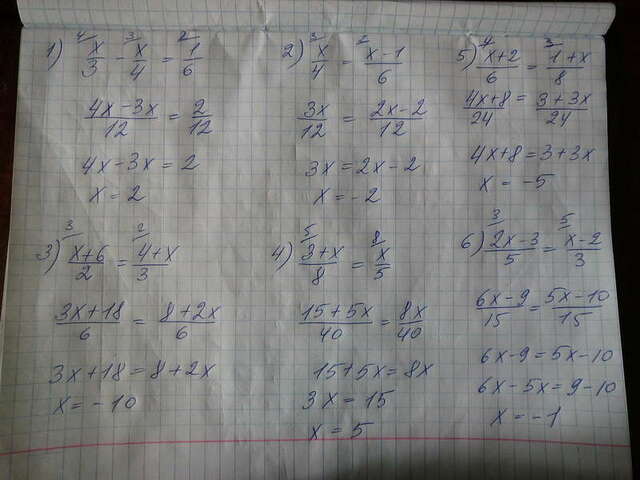 1) x/3 - x/4 = 1/6
(4x - 3x)/12 = 2/12
4x - 3x = 2
x = 2
2) x/4 = (x - 1)/6
3x/12 = (2x - 2)/12
3x = 2x - 2
x = -2
5) (x + 2)/6 = (1 + x)/8
(4x + 8)/24 = (3 + 3x)/24
4x + 8 = 3 + 3x
x = -5
3) (x + 6)/2 = (4 + x)/3
(3x + 18)/6 = (8 + 2x)/6
3x + 18 = 8 + 2x
x = -10
4) (3 + x)/8 = x/5
(15 + 5x)/40 = 8x/40
15 + 5x = 8x
3x = 15
x = 5
6) (2x - 3)/5 = (x - 2)/3
(6x - 9)/15 = (5x - 10)/15
6x - 9 = 5x - 10
6x - 5x = 9 - 10
x = -1